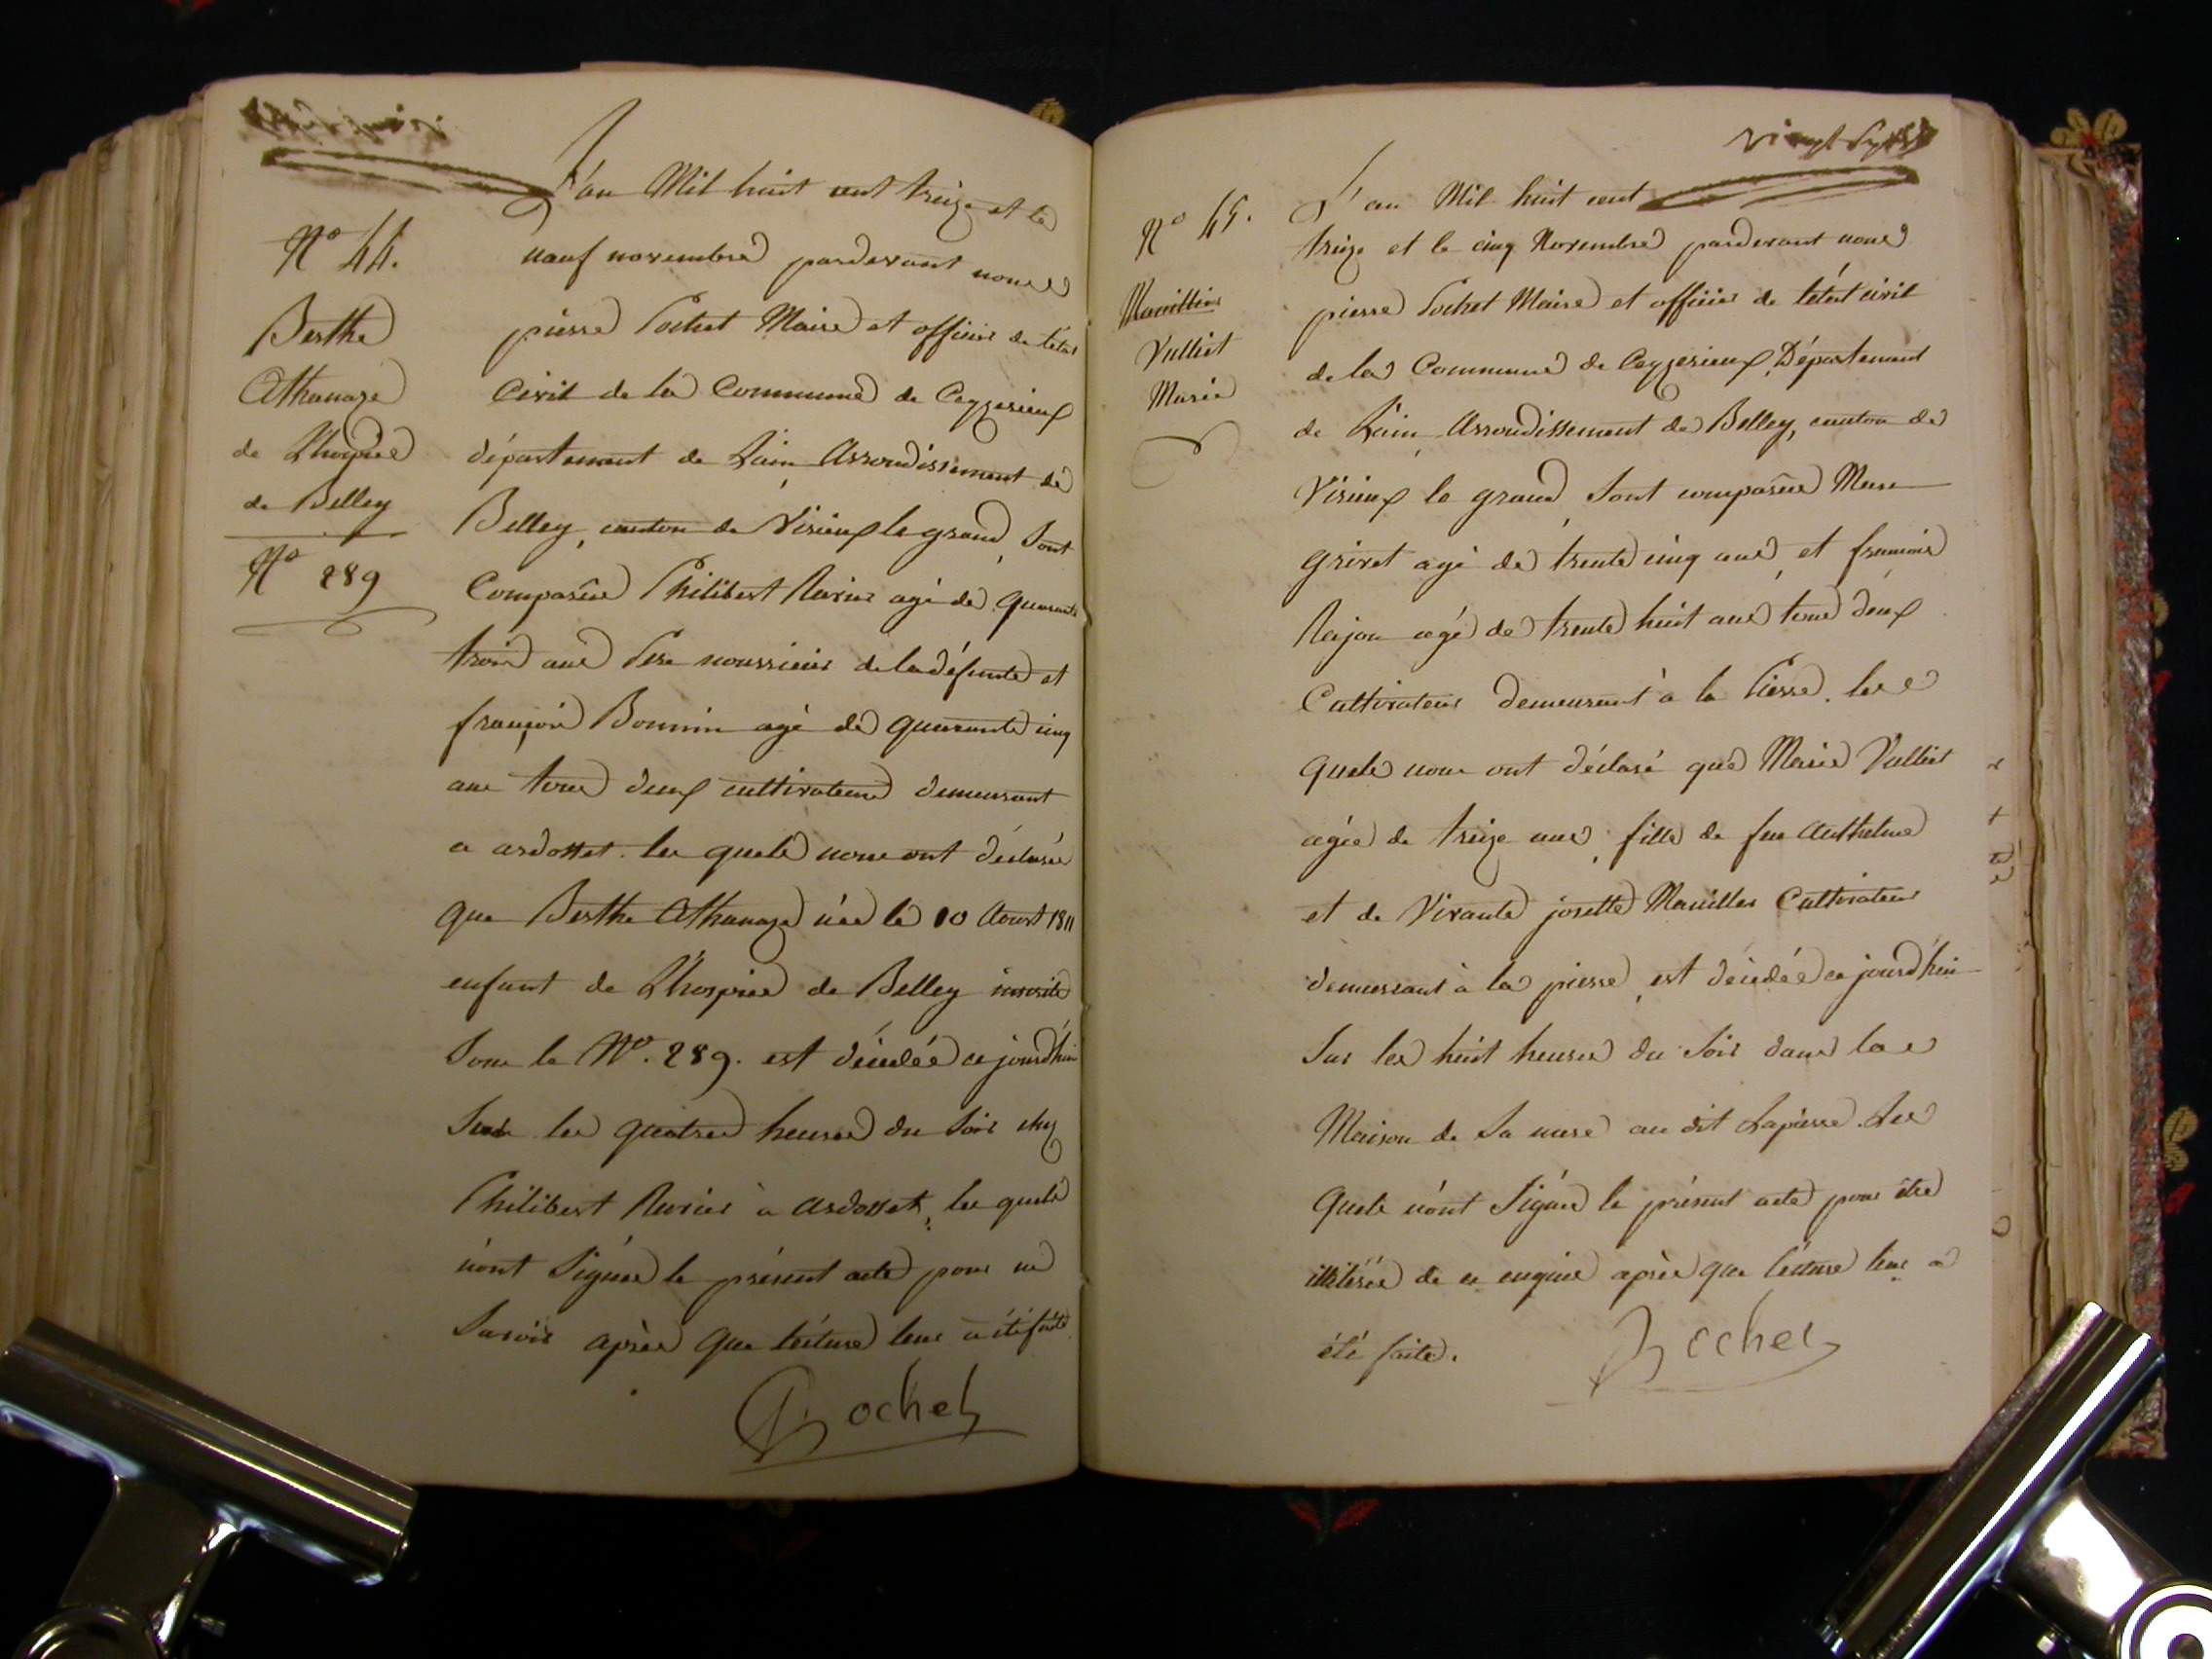 N° 44.
Berthe
Athanaze
de L'hospice
de Belley
N° 289
L'an Mil huit cent treize et le
neuf novembre pardevant nous
pierre Pochet Maire et officier de l'état
Civil de la Commune de Ceyzerieux
département de L'ain Arrondissement de
Belley, canton de Virieux le grand, Sont
Comparus Philibert agé de quarante
trois ans Pere nourricier de la défunte et
françois Bonnin agé de quarante cinq
ans tous deux cultivateurs demeurant
a ardosset. les quels nous ont déclarés
que Berthe Athanaze née le 10 Aoust 1811
enfant de L'hospice de Belley inscrite
Sous le N°. 289. est décédée ce jourd'hui
Sur les quatres heures du Soir chez
Philibert à ardosset, les quels
n'ont Signés le présent acte pour ne
Savoir après que lecture leur a été faite
Pochet
vingt Sept
N° 45.
Vulliet
Marie
L'an Mil huit cent
treize et le cinq Novembre pardevant nous
pierre Pochet Maire et officier de l'état civil
de la Commune de Ceyzerieux, Département
de L'ain, Arrondissement de Belley, canton de
Virieux le grand, Sont comparus Marc
grivet agé de trente cinq ans, et francois
Rejon agé de trente huit ans tous deux
Cultivateurs demeurant à la Pierre. les
quels nous ont déclaré que Marie Vulliet
agée de treize ans, fille de feu Anthelme
et de Vivante josette Cultivateur
demeurant à la pierre, est décédée ce jourd'hui
Sur les huit heures du Soir dans la
Maison de Sa mere au dit Lapierre. Les
quels n'ont Signés le présent acte pour être
illitérés de ce enquis après que lecture leur a
été faite.
Pochet